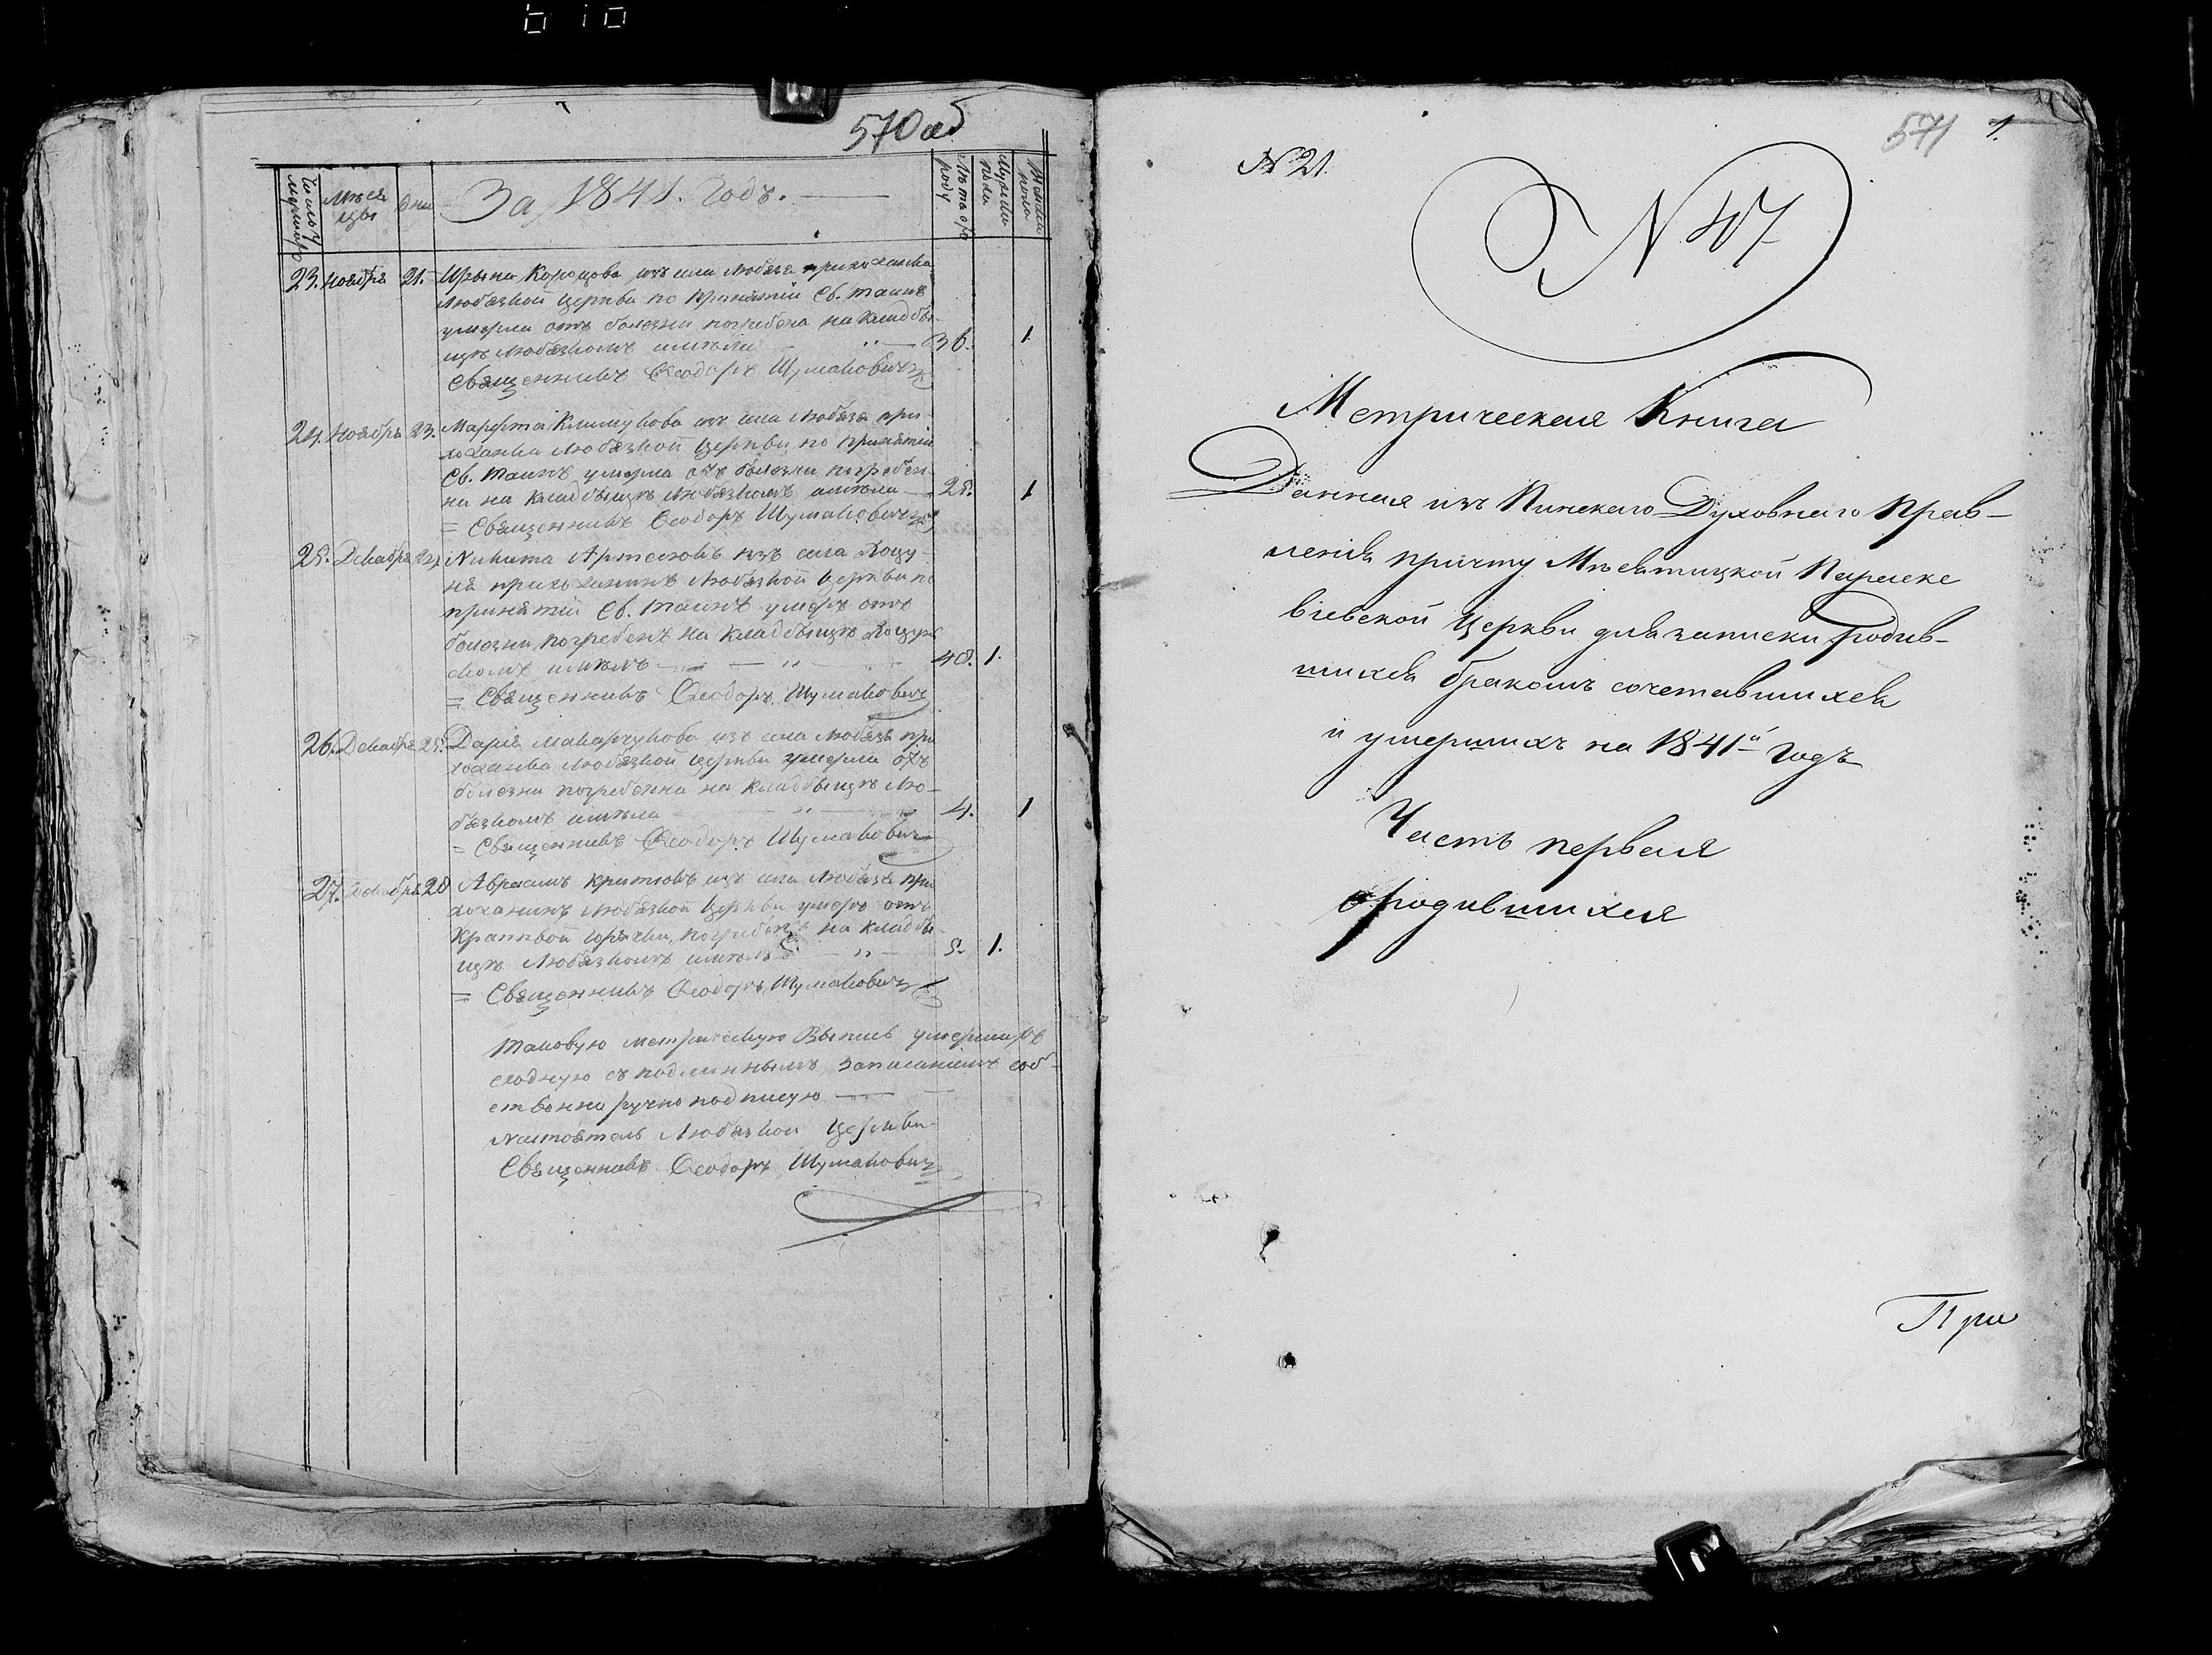 570 об
Число умерших
Меся
цы
Дни
За 1841. Годъ.
Лѣта от роду
Мужска пола
Женска пола
23. Ноября 21. Ирына из села Любязя прихожанка
Любязкой Церкви по принятіи Св. Таинъ
умерла отъ болезни погребена на кладбы-
щѣ Любязкомъ имѣла 36. 1
Священникъ Ѳеодоръ Шумаковичъ
24. Ноябрь 23. Марфта Климукова изъ села Любязя при-
хожанка Любязкой Церкви по принятіи
Св. Таинъ умерла отъ болезни погребен-
на на кладбыщѣ Любязкомъ имѣла 25. 1
= Священникъ Ѳеодоръ Шумаковичъ
25. Декабря Никита Артемовъ изъ села Доцу-
на прихожанинъ Любязкой Церкви по
принятіи Св. Таинъ умеръ отъ
болезни погребенъ на кладбыщѣ
скомъ имѣлъ 48. 1.
= Священникъ Ѳеодоръ Шумаковичъ
26. Декабря 25. Дарія Макарчукова изъ села Любязя при
хожанка Любязкой Церкви умерла отъ
болезни погребенна на кладбыщѣ Лю-
бязкомъ имѣла 4. 1
= Священникъ Ѳеодоръ Шумаковичъ
27. Декабря 28 Авраамъ изъ села Любязя при
хожанинъ Любязкой Церкви умеръ отъ
горячки, погребенъ на кладбы-
щѣ Любязкомъ имѣлъ 5. 1.
= Священникъ Ѳеодоръ Шумаковичъ
Таковую метрическую Выпись умершихъ
сходную съ подлиннымъ записаніемъ соб-
ственно ручно подписую
Настоятель Любязкой Церкви
Священникъ Ѳеодоръ Шумаковичъ
571 1.
№ 21.
№ 47
Метрическая Книга
Данная изъ Пинскаго Духовнаго Прав-
ленія причту Мѣсятицкой Параске
віевской Церкви для записки родив-
шихся бракомъ сочетавшихся
и умершихъ на 1841й годъ
Часть первая
о родившихся
При